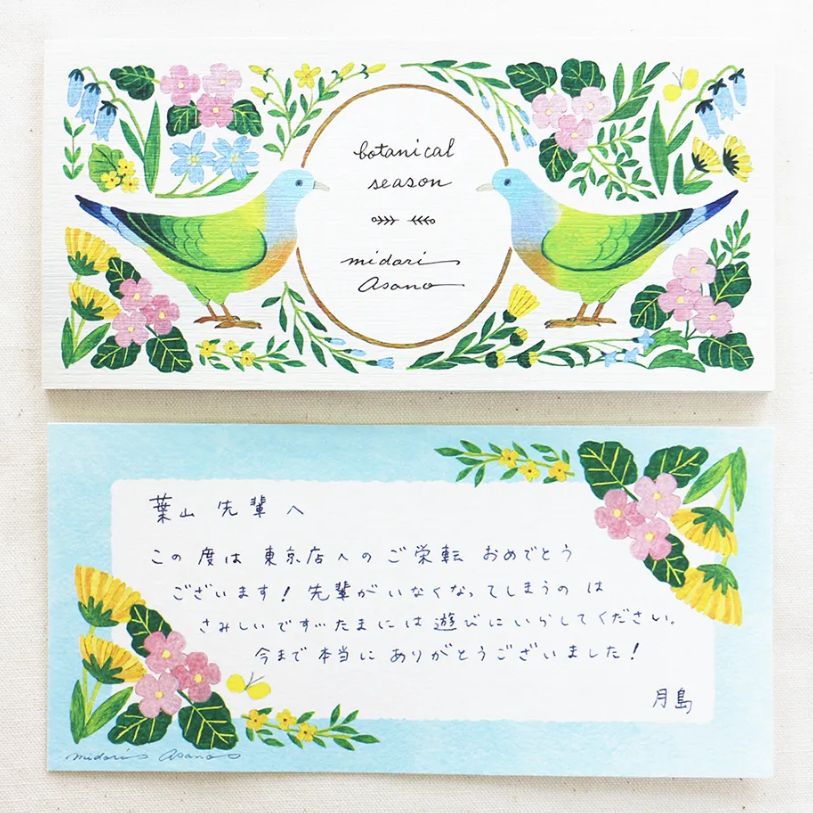 botanical
season
midori
asano
葉山 先輩 へ
この 度は 東京店への ご栄転 おめでとう
ございます! 先輩が いなくなってしまうの は
さみしいです…たまには 遊びに いらしてください。
今まで 本当に ありがとうございました!
月島
midori asano